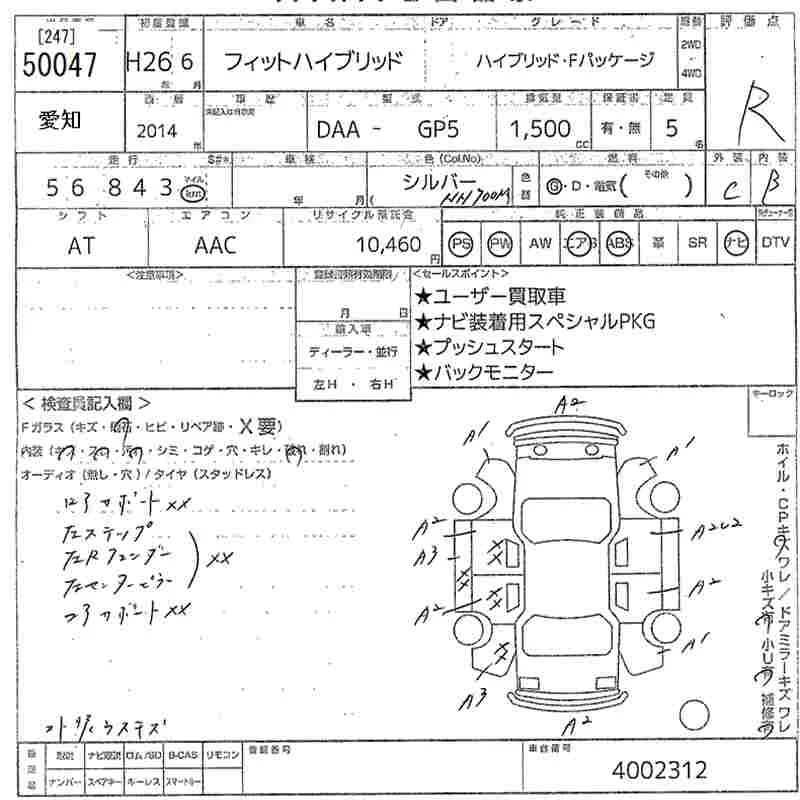 [247]
50047
初度登録
H26 6
年 月
車名
フィットハイブリッド
ドア
グレード
ハイブリッド・Fパッケージ
駆動
2WD
4WD
評価点
R
愛知
2014
年
車歴
型式
DAA - GP5
排気量
1,500
CC
保証書
有・無
定員
5
名
走行
56843
マイル
km
車検
年 月
色(Col.No)
シルバー
NH700M
燃料
G・D・電気( その他 )
外装
C
内装
B
シフト
AT
エアコン
AAC
リサイクル預託金
10,460
円
純正装備品
PS PW AW エアB ABS 革 SR ナビ
DTV
<注意事項>
登録書類有効期限
月 日
輸入車
ディーラー・並行
左H ・ 右H
<セールスポイント>
★ユーザー買取車
★ナビ装着用スペシャルPKG
★プッシュスタート
★バックモニター
モーロック
<検査員記入欄>
Fガラス(キズ・飛石・ヒビ・リペア跡・X要)
内装(キズ・スレ・汚れ・シミ・コゲ・穴・キレ・破れ・割れ)
オーディオ(無し・穴)/タイヤ(スタッドレス)
ロアサポートxx
左ステップ
左Rフェンダー
左センターピラー
xx
コアサポートxx
A2
A1
A1
A2
A3
A2
A2U2
A2
A1
A3
A2
xx
xx
xx
xx
ホイル・CPキズワレ/ドアミラーキズワレ
小キズ有 小U有 補修有
取説
ナビ取説
ロム/SD
B-CAS
リモコン
ナンバー
スペアキー
キーレス
スマートキー
登録番号
車台番号
4002312